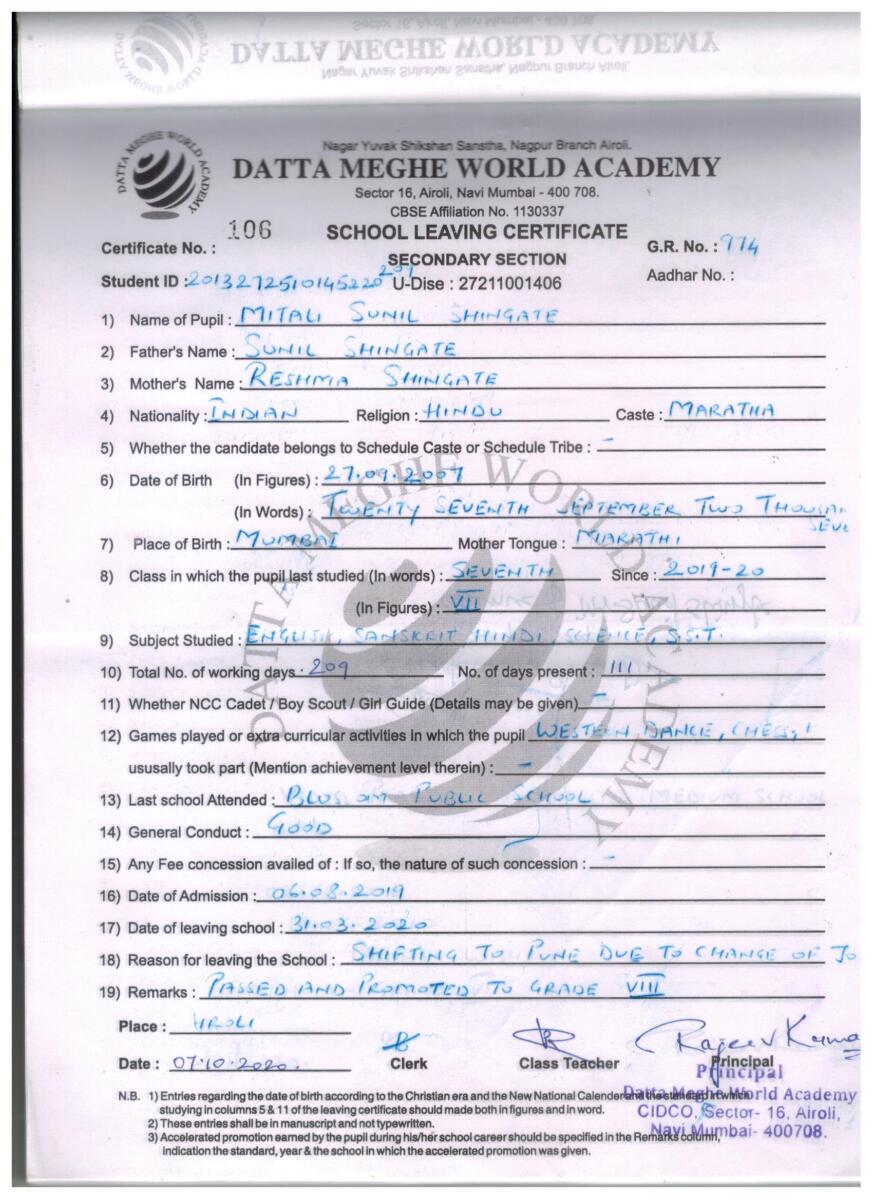 Sector 16, Airoli, Navi Mumbai - 400 708.
DATTA MEGHE WORLD ACADEMY
Nagar Yuvak Shikshan Sanstha, Nagpur Branch Airoli.
DATTA MEGHE WORLD ACADEMY
Nagar Yuvak Shikshan Sanstha, Nagpur Branch Airoli.
DATTA MEGHE WORLD ACADEMY
Sector 16, Airoli, Navi Mumbai - 400 708.
CBSE Affiliation No. 1130337
Certificate No. : 106 SCHOOL LEAVING CERTIFICATE G.R. No. : 974
SECONDARY SECTION Aadhar No. :
Student ID : 2013272510145220209 U-Dise : 27211001406
1) Name of Pupil : MITALI SUNIL SHINGATE
2) Father's Name : SUNIL SHINGATE
3) Mother's Name : RESHMA SHINGATE
4) Nationality : INDIAN Religion : HINDU Caste : MARATHA
5) Whether the candidate belongs to Schedule Caste or Schedule Tribe : –
6) Date of Birth (In Figures) : 27.09.2007
(In Words) : TWENTY SEVENTH SEPTEMBER TWO THOUSAN
SEVE
7) Place of Birth : MUMBAI Mother Tongue : MARATHI
8) Class in which the pupil last studied (In words) : SEVENTH Since : 2019-20
(In Figures) : VII
9) Subject Studied : ENGLISH, SANSKRIT, HINDI, SCIENCE, S.S.T.
10) Total No. of working days : 209 No. of days present : 111
11) Whether NCC Cadet / Boy Scout / Girl Guide (Details may be given) –
12) Games played or extra curricular activities in which the pupil WESTERN DANCE, CHESS,
ususally took part (Mention achievement level therein) : –
13) Last school Attended : BLOSSOM PUBLIC SCHOOL
14) General Conduct : GOOD
15) Any Fee concession availed of : If so, the nature of such concession : –
16) Date of Admission : 06.08.2019
17) Date of leaving school : 31.03.2020
18) Reason for leaving the School : SHIFTING TO PUNE DUE TO CHANGE OF JO
19) Remarks : PASSED AND PROMOTED TO GRADE VIII
Place : AIROLI
Rajeev Kumar
Date : 07.10.2020. Clerk Class Teacher Principal
Principal
Datta Meghe World Academy
CIDCO, Sector- 16, Airoli,
Navi Mumbai- 400708.
N.B. 1) Entries regarding the date of birth according to the Christian era and the New National Calender and the standard in which
studying in columns 5 & 11 of the leaving certificate should made both in figures and in word.
2) These entries shall be in manuscript and not typewritten.
3) Accelerated promotion earned by the pupil during his/her school career should be specified in the Remarks column,
indication the standard, year & the school in which the accelerated promotion was given.
DATTA MEGHE WORLD ACADEMY